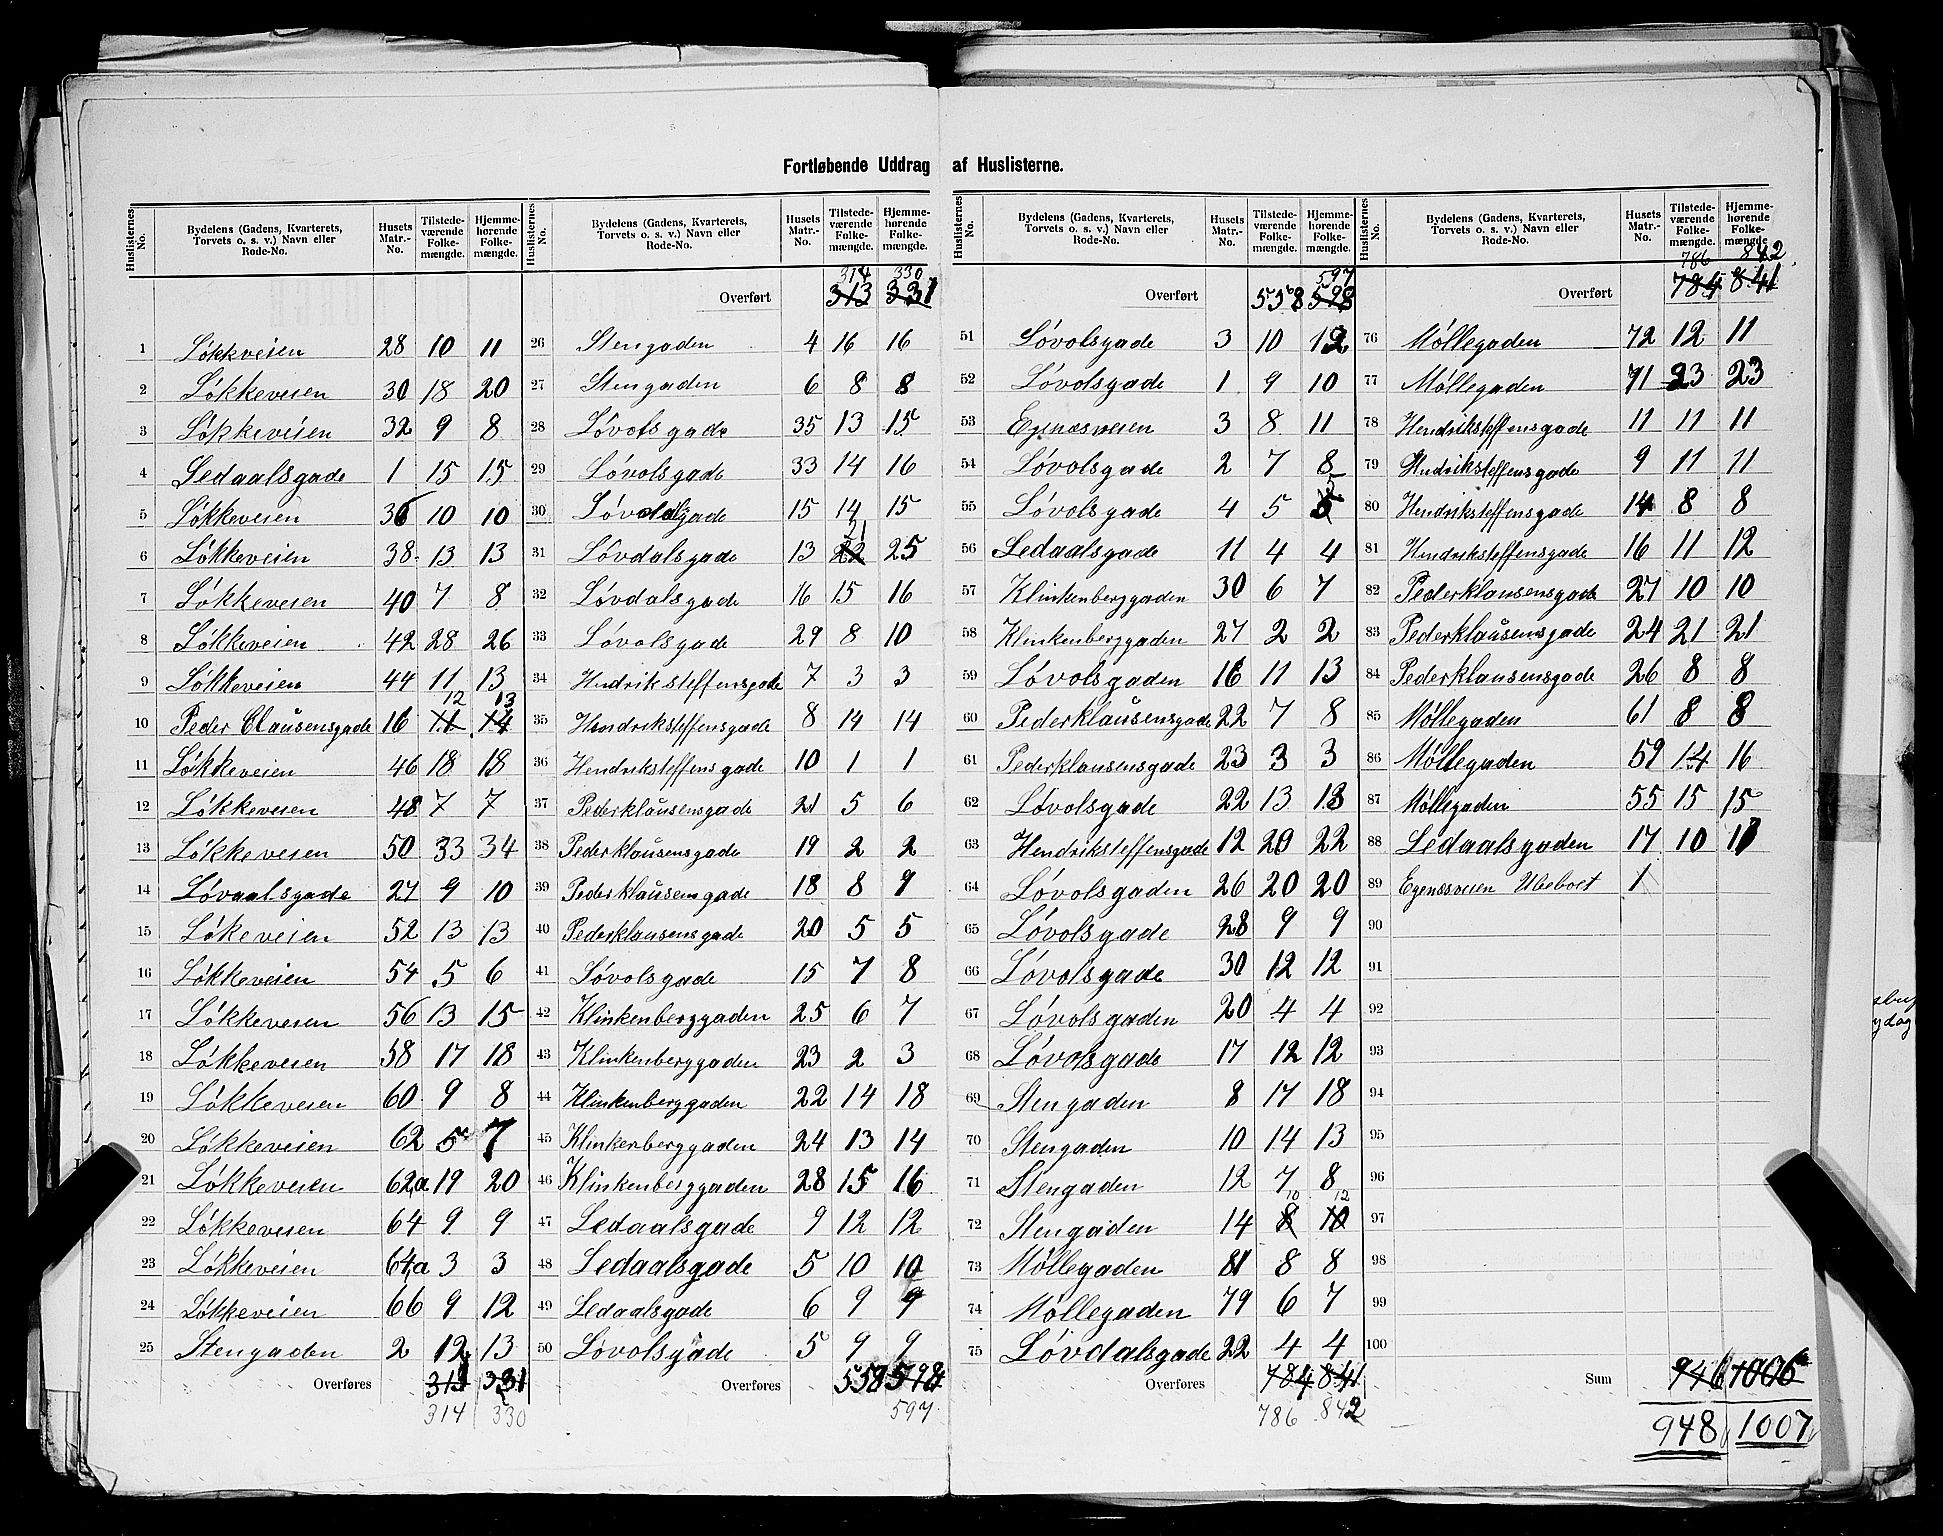 Fortløbende Uddrag af Huslisterne.
Huslisternes No. | Bydelens (Gadens, Kvarterets, Torvets o. s. v.) Navn eller Rode-No. | Husets Matr.-No. | Tilstedeværende Folkemængde. | Hjemmehørende Folkemængde.
1 Løkkveien 28 10 11
2 Løkkeveien 30 18 20
3 Løkkeveien 32 9 8
4 Ledaalsgade 1 15 15
5 Løkkeveien 36 10 10
6 Løkkeveien 38 13 13
7 Løkkeveien 40 7 8
8 Løkkeveien 42 28 26
9 Løkkeveien 44 11 13
12 13
10 Peder Claŭsensgade 16 11 14
11 Løkkeveien 46 18 18
12 Løkkeveien 48 7 7
13 Løkkeveien 50 33 34
14 Løvaalsgade 27 9 10
15 Løkeveien 52 13 13
16 Løkkeveien 54 5 6
17 Løkkeveien 56 13 15
18 Løkkeveien 58 17 18
19 Løkkeveien 60 9 8
20 Løkkeveien 62 5 7
21 Løkkeveien 62,a 19 20
22 Løkkeveien 64 9 9
23 Løkkeveien 64,a 3 3
24 Løkkeveien 66 9 12
25 Stengaden 2 12 13
Overføres 313 331
314 330
Huslisternes No. | Bydelens (Gadens, Kvarterets, Torvets o. s. v.) Navn eller Rode-No. | Husets Matr.-No. | Tilstedeværende Folkemængde. | Hjemmehørende Folkemængde.
314 330
Overført 313 331
26 Stengaden 4 16 16
27 Stengaden 6 8 8
28 Løvolsgade 35 13 15
29 Løvolsgade 33 14 16
30 Løvdalsgade 15 14 15
21
31 Løvdalsgade 13 22 25
32 Løvdalsgade 16 15 16
33 Løvolsgade 29 8 10
34 Hndriksteffensgade 7 3 3
35 Hendriksteffensgade 8 14 14
36 Hendriksteffensgade 10 1 1
37 Pederklaŭsensgade 21 5 6
38 Pederklaŭsensgade 19 2 2
39 Pederklaŭsensgade 18 8 9
40 Pederklausensgade 20 5 5
41 Løvolsgade 15 7 8
42 Klinkenberggaden 25 6 7
43 Klinkenberggaden 23 2 3
44 Klinkenberggaden 22 14 18
45 Klinkenberggaden 24 13 14
46 Klinkenberggaden 28 15 16
47 Ledaalsgade 9 12 12
48 Ledaalsgade 5 10 10
49 Ledaalsgade 6 9 9
50 Løvolsgade 5 9 9
Overføres 558 598
597
Huslisternes No. | Bydelens (Gadens, Kvarterets, Torvets o. s. v.) Navn eller Rode-No. | Husets Matr.-No. | Tilstedeværende Folkemængde. | Hjemmehørende Folkemængde.
597
Overført 558 598
51 Løvolsgade 3 10 12
52 Løvolsgade 1 9 10
53 Egenæsveien 3 8 11
54 Løvolsgade 2 7 8
5
55 Løvolsgade 4 5
56 Ledaalsgade 11 4 4
57 Klinkenberggaden 30 6 7
58 Klinkenberggaden 27 2 2
59 Løvolsgaden 16 11 13
60 Pederklaŭsensgade 22 7 8
61 Pederklausensgade 23 3 3
62 Løvolsgade 22 13 13
63 Hendriksteffensgade 12 20 22
64 Løvolsgaden 26 20 20
65 Løvolsgade 28 9 9
66 Løvolsgade 30 12 12
67 Løvolsgaden 20 4 4
68 Løvolsgade 17 12 12
69 Stengaden 8 17 18
70 Stengaden 10 14 13
71 Stengaden 12 7 8
10 12
72 Stengaden 14 8 10
73 Møllegaden 81 8 8
74 Møllegaden 79 6 7
75 Løvdalsgade 22 4 4
Overføres 784 841
786 842
Huslisternes No. | Bydelens (Gadens, Kvarterets, Torvets o. s. v.) Navn eller Rode-No. | Husets Matr.-No. | Tilstedeværende Folkemængde. | Hjemmehørende Folkemængde.
786 842
Overført 784 841
76 Møllegaden 72 12 11
77 Møllegaden 71 23 23
78 Hendriksteffensgade 11 11 11
79 Hndriksteffensgade 9 11 11
80 Hendriksteffensgade 14 8 8
81 Hendriksteffensgade 16 11 12
82 Pederklausensgade 27 10 10
83 Pederklaŭsensgade 24 21 21
84 Pederklausensgade 26 8 8
85 Møllegaden 61 8 8
86 Møllegaden 59 14 16
87 Møllegaden 55 15 15
88 Ledaalsgaden 17 10 11
89 Egenæsveien Ubeboet 1
90
91
92
93
94
95
96
97
98
99
100
Sum 946 1006
948 1007